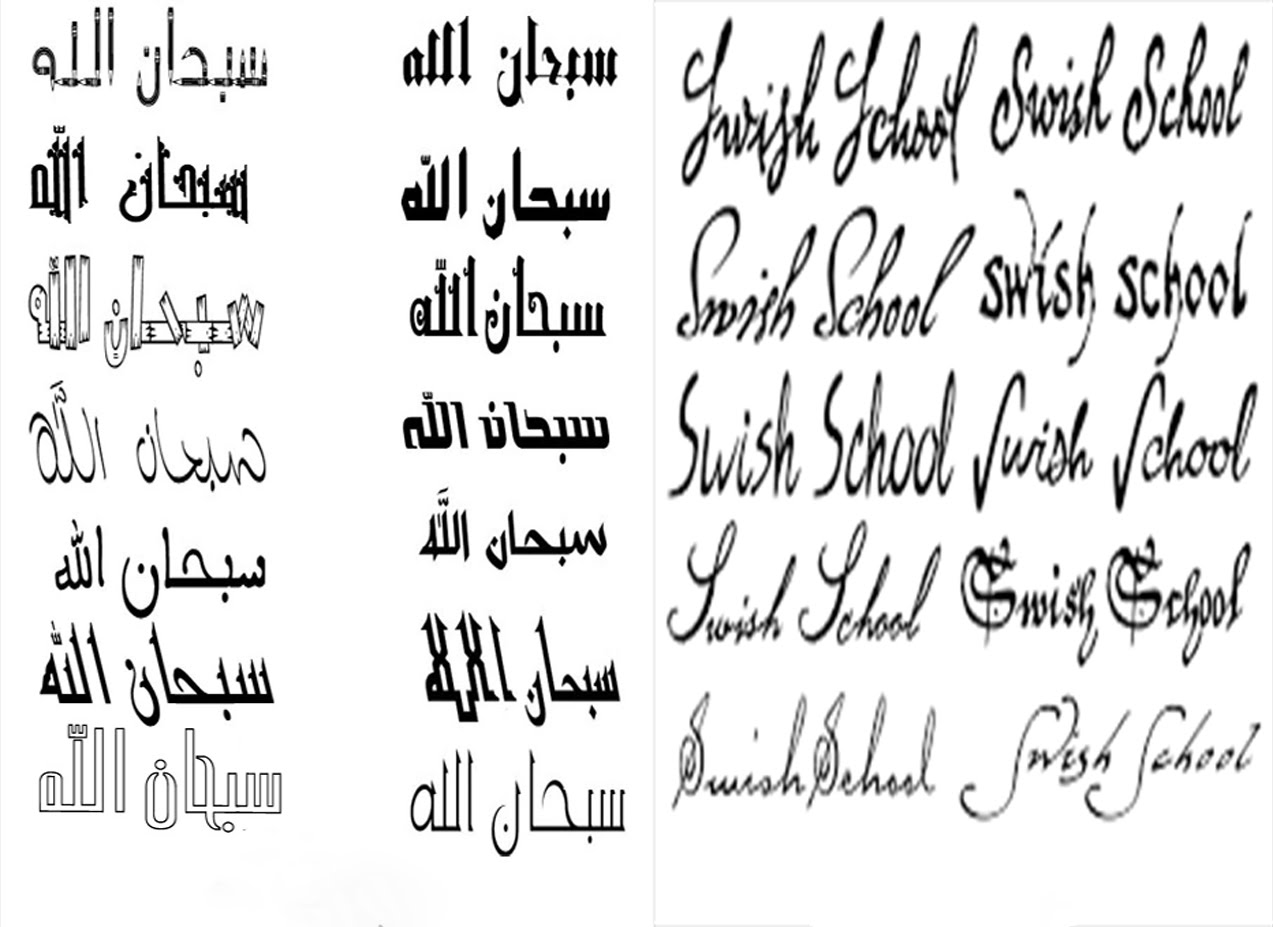 سبحان الله
سبحان الله
سبحان الله
سبحان الله
سبحان الله
سبحان الله
سبحان الله
سبحان الله
سبحان الله
سبحان الله
سبحان الله
سبحان الله
سبحان الله
سبحان الله
Swish School Swish School
Swish School swish school
Swish School Swish School
Swish School Swish School
Swish School Swish School